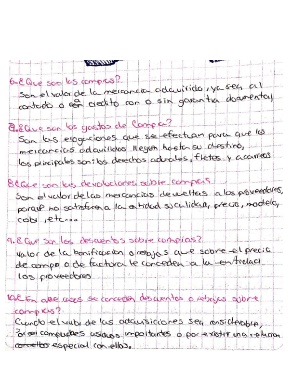 6. ¿Que son las compras?
Son el valor de la mercancia adquirida, ya sea al
contado o en credito con o sin garantia documental
7. ¿Que son los gastos de Compra?
Son las erogaciones que se efectuan para que las
mercancias adquiridas lleguen hasta su destino,
los principales son: los derechos aduanales, fletes y acarreos
8. ¿Que son las devoluciones sobre compras?
Son el valor de las mercancias devueltas a los proveedores,
porque no satisfacen la calidad su calidad, precio, modelo,
color, etc...
9. ¿Que son los descuentos sobre compras?
Valor de la bonificación o rebajas que sobre el precio
de compra o de factura le conceden a la entidad
los proveedores
10. ¿En que casos se conceden descuentos o rebajas sobre
compras?
Cuando el valor de las adquisiciones sea considerable,
por existir una relacion
especial con ellos.